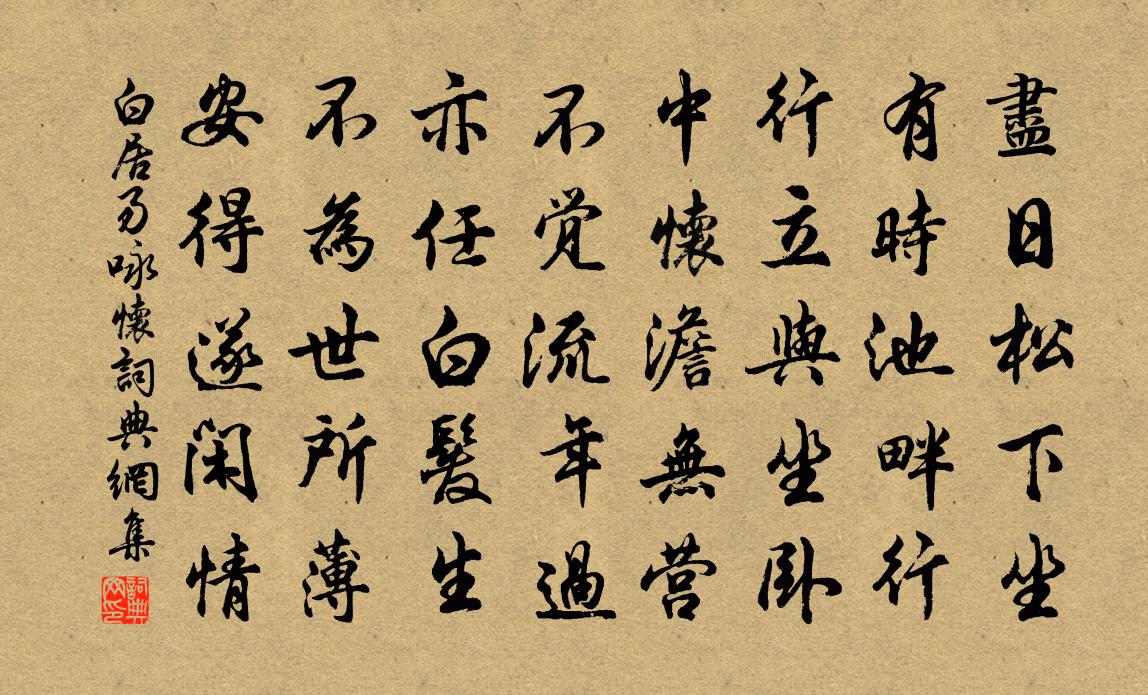 盡日松下坐
有時池畔行
行立與坐臥
中懷澹無營
不覺流年過
亦任白髮生
不為世所薄
安得遂閑情
白居易詠懷詞典網集
詞典
网印